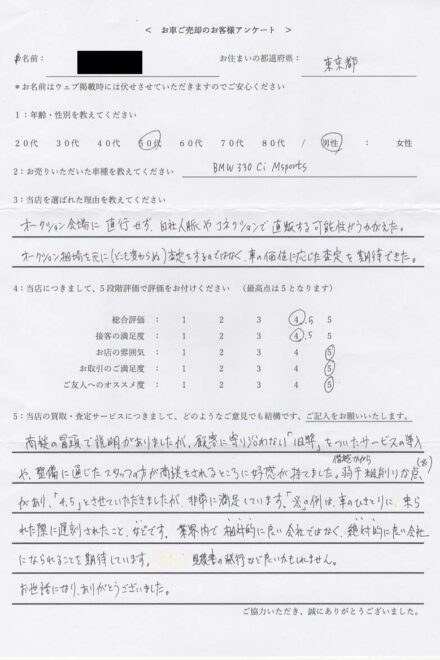 ＜ お車ご売却のお客様アンケート ＞
*名前： お住まいの都道府県： 東京都
*お名前はウェブ掲載時には伏せさせていただきますのでご安心ください
1：年齢・性別を教えてください
20代 30代 40代 50代 60代 70代 80代 / 男性 ： 女性
2：お売りいただいた車種を教えてください BMW 330 Ci Msports
3：当店を選ばれた理由を教えてください
オークション会場に直行せず、自社人脈やコネクションで直販する可能性がうかがえた。
オークション相場を元に(どこも変わらぬ)査定をするのではなく、車の価値に応じた査定を期待できた。
4：当店につきまして、5段階評価で評価をお付けください （最高点は5となります）
総合評価： 1 2 3 4.5 5
接客の満足度： 1 2 3 4.5 5
お店の雰囲気： 1 2 3 4 5
お取引のご満足度： 1 2 3 4 5
ご友人へのオススメ度： 1 2 3 4 5
5：当店の買取・査定サービスにつきまして、どのようなご意見でも結構です、ご記入をお願いいたします。
商談の冒頭で説明がありましたが、顧客に寄り添わない「旧弊」をついたサービスの導入
や、整備に通じたスタッフの方が商談をされるところに好感が持てました。若干粗削りな点(※)
があり、「4.5」とさせていただきましたが、非常に満足しています。「※」の例は、車のひきとりに来ら
れた際に遅刻されたこと、などです。業界内で相対的に良い会社ではなく、絶対的に良い会社
になられることを期待しています。 見積書の発行など良いかもしれません。
お世話になり、ありがとうございました。
ご協力いただき、誠にありがとうございました。